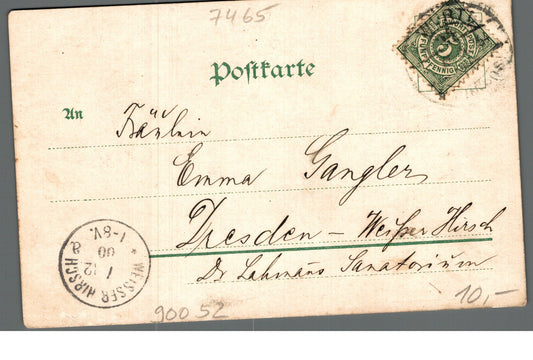 7465
Postkarte
5
FÜNF PFENNIG
An
Fräulein
Emma Gangler
Dresden – Weißer Hirsch
Dr Lahmans Sanatorium
WEISSER HIRSCH
1 12
00
7-8V.
10,-
90052